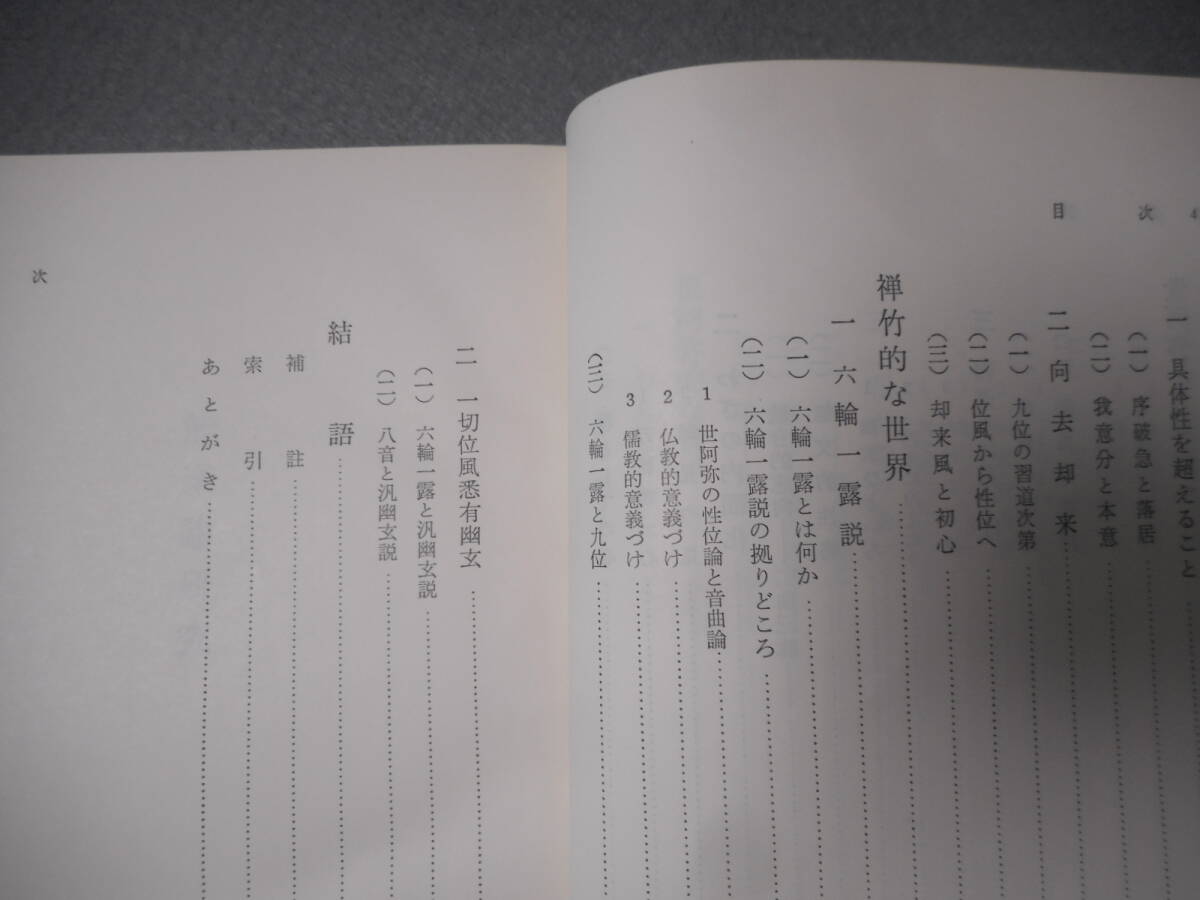 目次 4
一 具体性を超えること
(一) 序破急と落居
(二) 我意分と本意
二 向去却来
(一) 九位の習道次第
(二) 位風から性位へ
(三) 却来風と初心
禅竹的な世界
一 六輪一露説
(一) 六輪一露とは何か
(二) 六輪一露説の拠りどころ
1 世阿弥の性位論と音曲論
2 仏教的意義づけ
3 儒教的意義づけ
(三) 六輪一露と九位
二 一切位風悉有幽玄
(一) 六輪一露と汎幽玄説
(二) 八音と汎幽玄説
結語
補註
索引
あとがき
次